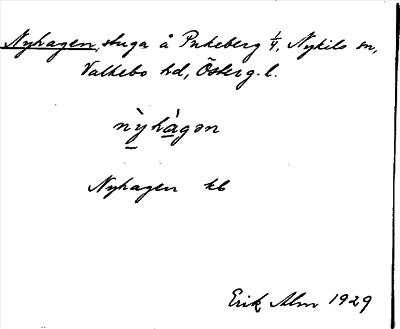 Nyhagen, stuga å Pukeberg 1/4, Nykils sn,
Valkebo hd, Österg. l.
nỳhàgən
Nyhagen kb
Erik Alm 1929